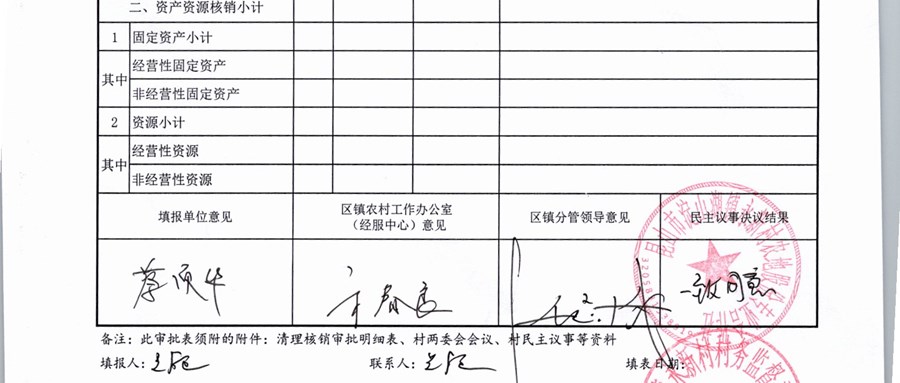 二、资产资源核销小计
1 固定资产小计
其中 经营性固定资产
非经营性固定资产
2 资源小计
其中 经营性资源
非经营性资源
填报单位意见 区镇农村工作办公室（经服中心）意见 区镇分管领导意见 民主议事决议结果
一致同意
备注：此审批表须附的附件：清理核销审批明细表、村两委会会议、村民主议事等资料
填报人： 联系人： 填表日期：